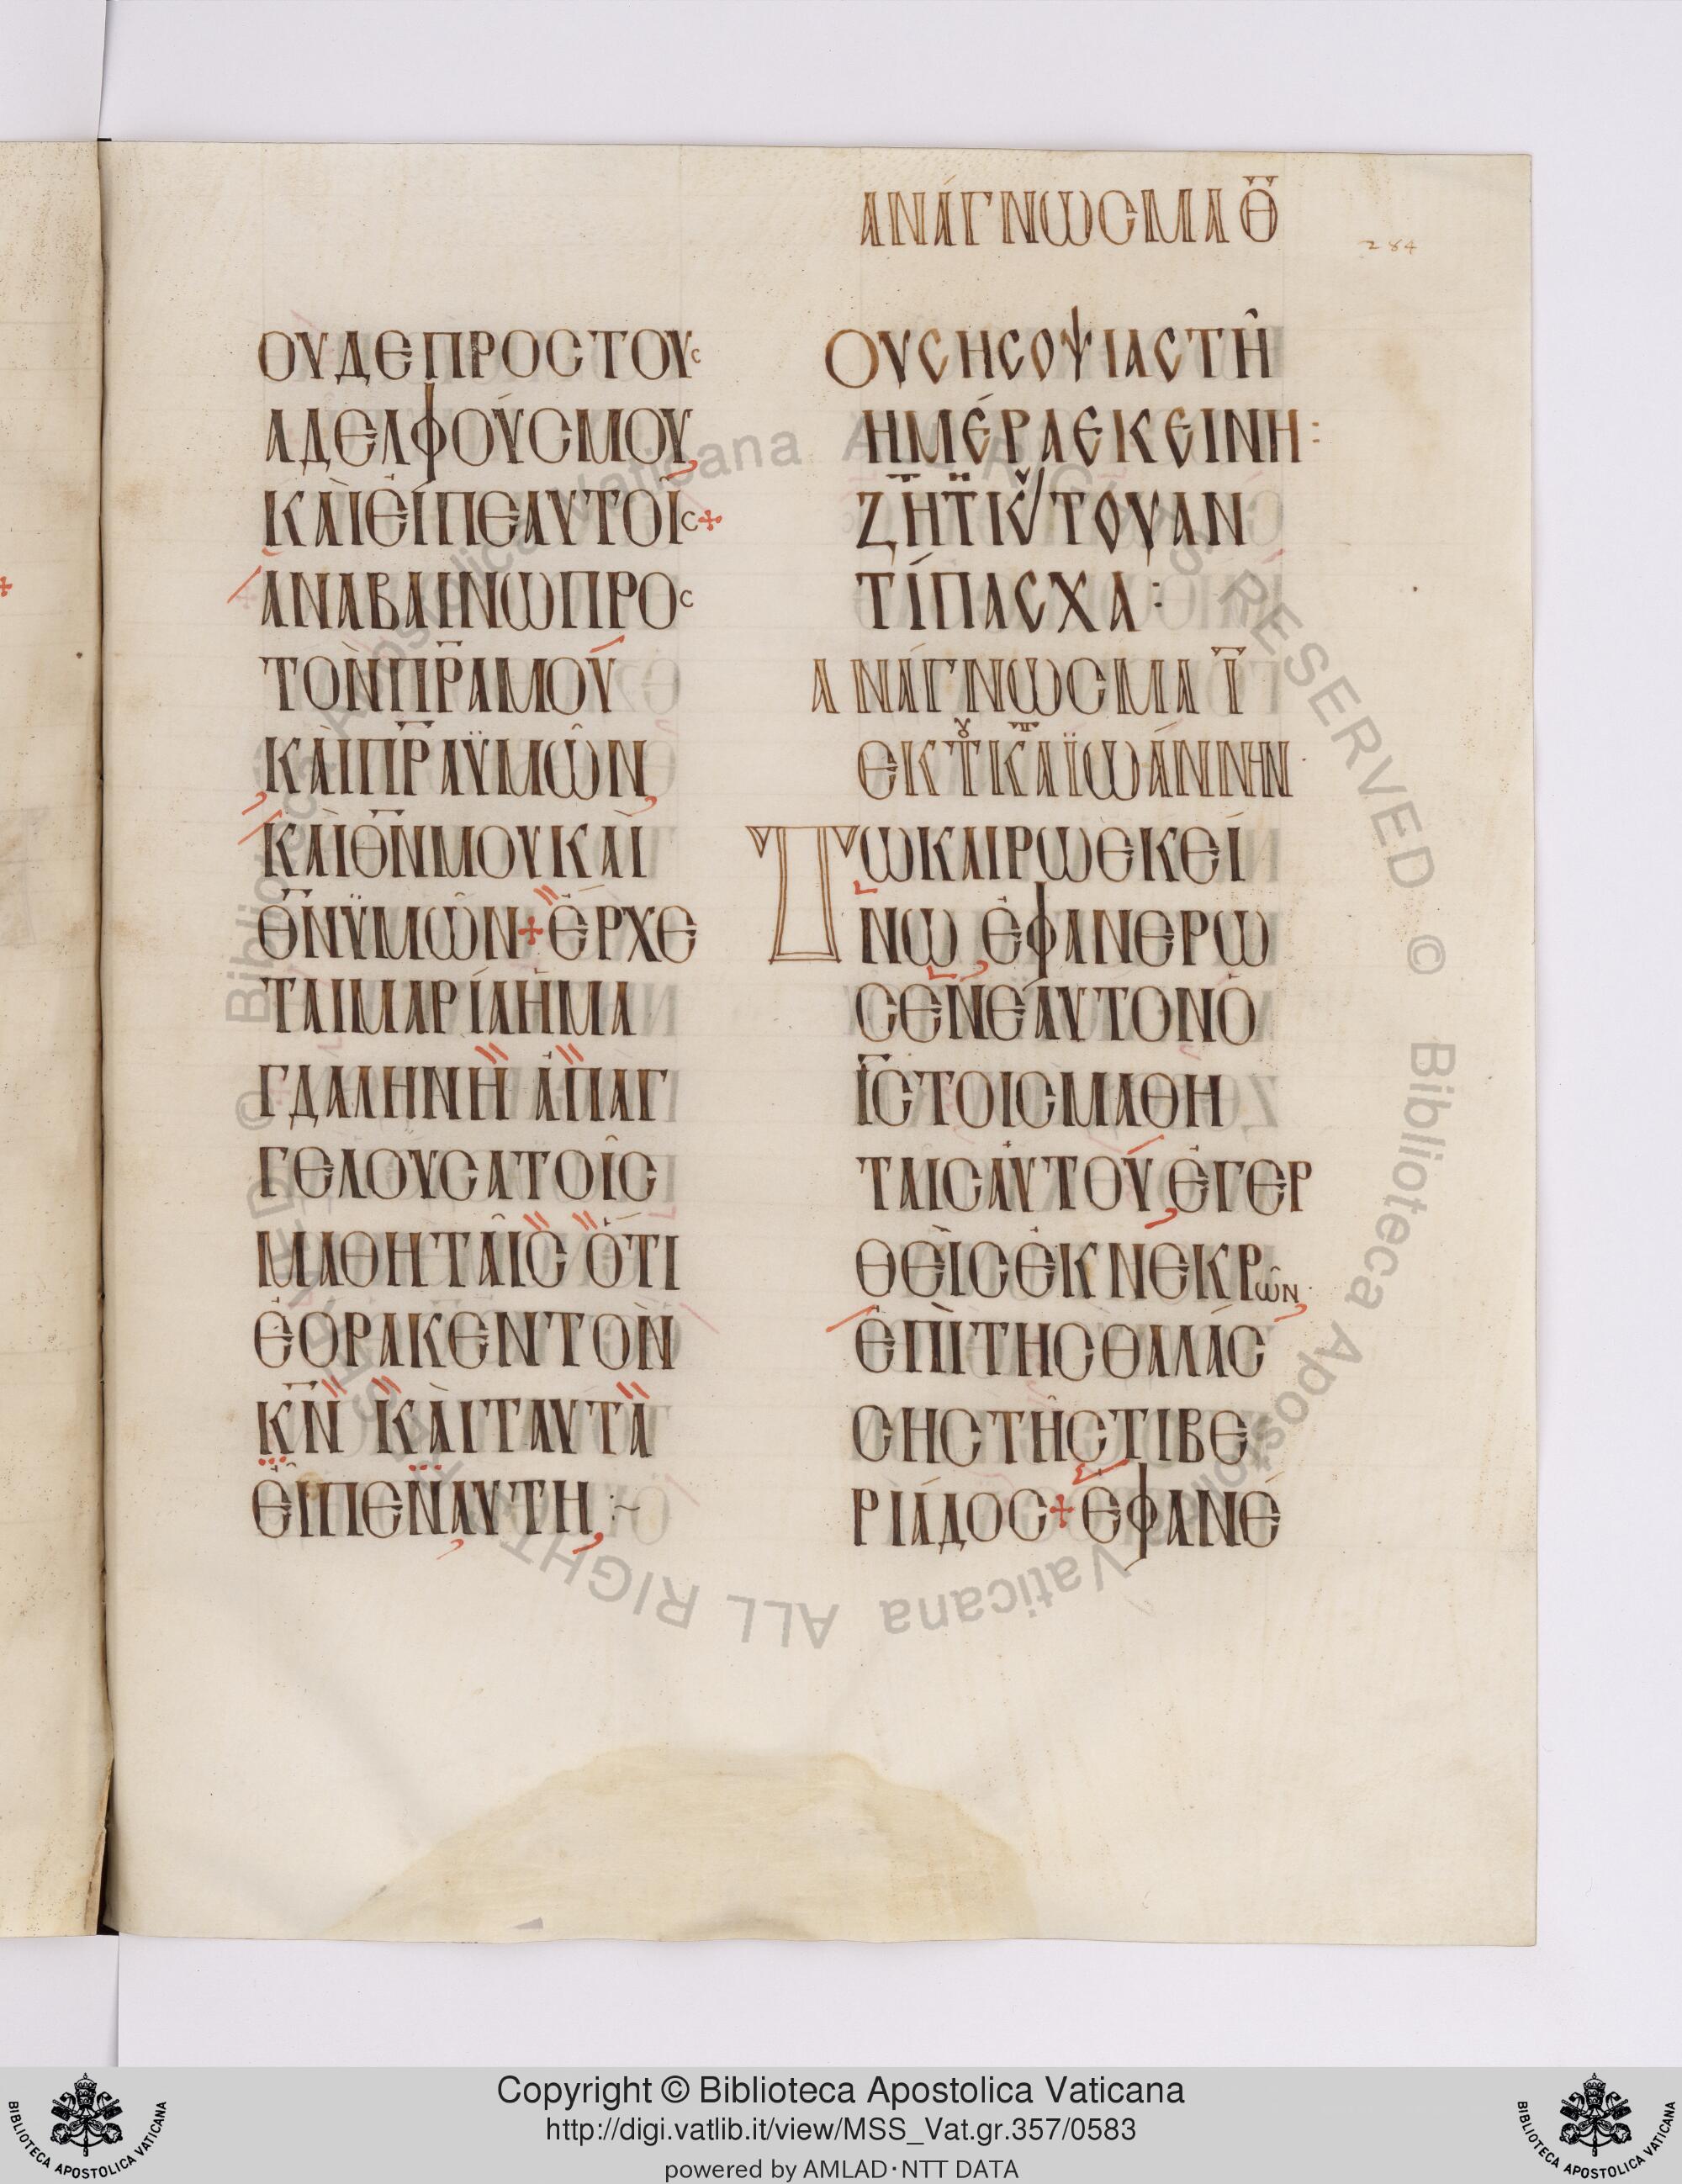 ΑΝΆΓΝΩCΜΑ Θ̅
284
ΟΥΔΕΠΡΟCΤΟΥC
ΑΔΕΛΦΟΎCΜΟΥ
ΚΑῚΕἾΠΕΑΥΤΟῖC+
ΑΝΑΒΑΙΝΩΠΡΟC
ΤΟΝΠ̅Ρ̅ΑΜΟΥ
ΚΑΙΠ̅Ρ̅ΑΫΜΩ͂Ν
ΚΑΙΘ̅Ν̅ΜΟΥΚΑΙ
Θ̅Ν̅ΫΜΩ͂Ν+ΕΡΧΕ
ΤΑΙΜΑΡΊΑΗΜΑ
ΓΔΑΛΗΝΗ ΑΠΑΓ
ΓΕΛΟΥCΑΤΟῖC
ΜΑΘΗΤΑῖC ΟΤΙ
ΕΟΡΑΚΕΝΤΟΝ
Κ̅Ν̅ ΚΑΙΤΑΥΤΑ
ΕΙΠΕΝΑΥΤΗ :~
ΟΥCΗCΟΨΙΑCΤΗ͂
ΗΜΈΡΑΕΚΕΙΝΗ:
ΖΗΤΚΥ/ΤΟΥΑΝ
ΤΊΠΑCΧΑ:
ΑΝΆΓΝΩCΜΑ Ι̅
ΕΚΤΟΥΚΑΤΑΪΩΆΝΝΗΝ
ΤΩΚΑΙΡΩΕΚΕΊ
ΝΩ ΕΦΑΝΕΡΩ
CΕΝΕΑΥΤΟΝΟ
Ι̅C̅ΤΟΙCΜΑΘΗ
ΤΑΙCΑΥΤΟΥΕΓΕΡ
ΘΕΙCΕΚΝΕΚΡΩ͂Ν
ΕΠΙΤΗCΘΑΛΆC
CΗCΤΗ͂CΤΙΒΕ
ΡΙΆΔΟC+ΕΦΑΝΕ
© Biblioteca Apostolica Vaticana ALL RIGHTS RESERVED © Biblioteca Apostolica Vaticana ALL RIGHTS RESERVED
BIBLIOTECA APOSTOLICA VATICANA
Copyright © Biblioteca Apostolica Vaticana
http://digi.vatlib.it/view/MSS_Vat.gr.357/0583
powered by AMLAD・NTT DATA
BIBLIOTECA APOSTOLICA VATICANA